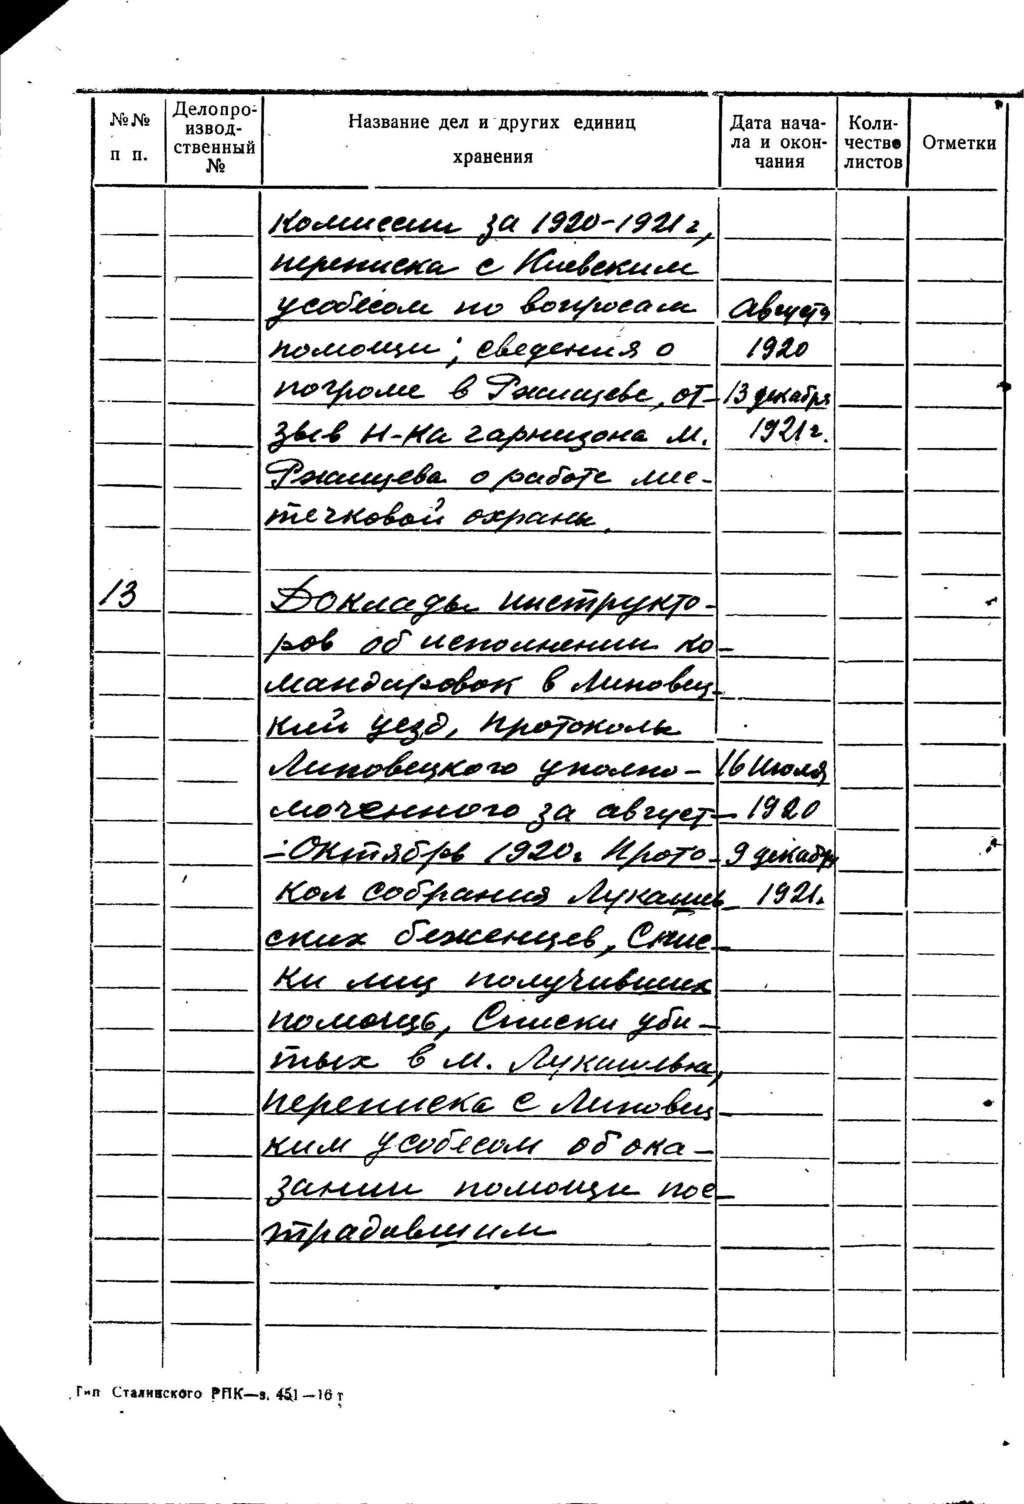 №№ п п.
Делопро-
извод-
ственный
№
Название дел и других единиц
хранения
Дата нача-
ла и окон-
чания
Коли-
чество
листов
Отметки
Комиссии за 1920-1921 г,
переписка с Киевским
усобесом по вопросам
помощи; сведения о
погроме в Ржищеве, от-
зыв н-ка гарнизона м.
Ржищева о работе мес-
течковой охраны.
Августа
1920
13 декабря
1921 г.
13
Доклады инструкто-
ров об исполнении ко-
мандировок в Липовец-
кий уезд, протоколы
Липовецкого уполно-
моченного за август-
-Октябрь 1920г Прото-
кол собрания Лукашев-
ских беженцев, Спис-
ки лиц получивших
помощь, Списки уби-
тых в м. Лукашевка,
переписка с Липовец-
ким усобесом об ока-
зании помощи пос-
традавшим
16 Июля
1920
9 декабря
1921.
Тип Сталинского РПК—з. 451—16 т